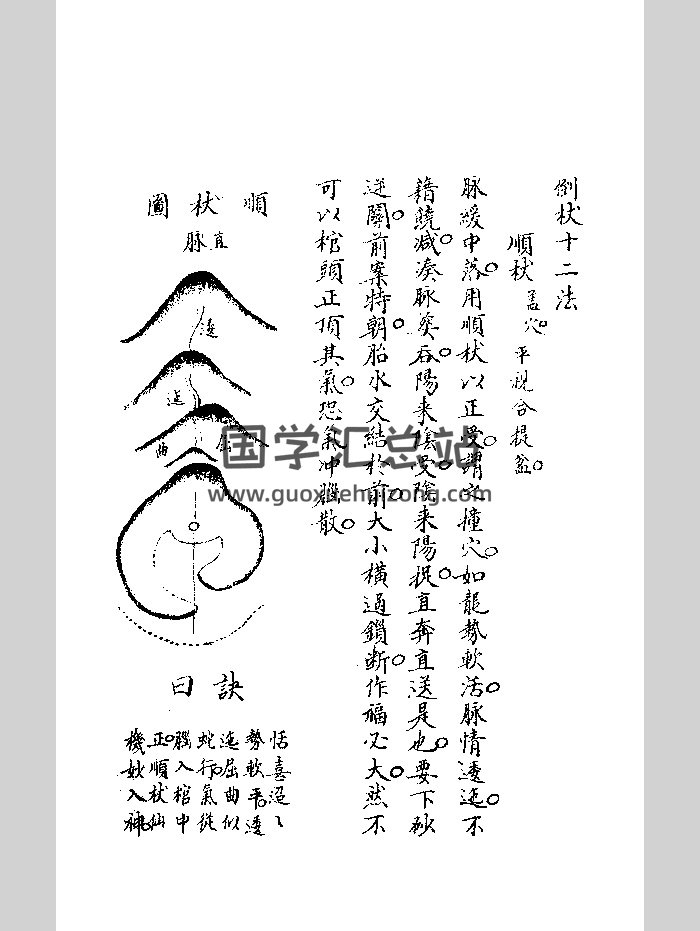 倒杖十二法
順杖 蓋穴 平視合提盆
脉緩中落用順杖以正受謂之撞穴如龍勢軟活脉情逶迤不
饒減湊脉葵吞陽来陰受陰来陽捉直奔直送是也要下砂
逆關前案特朝胎水交結於前大小横過鎖断作福必大然不
可以棺頭正頂其氣恐氣冲腦散
順杖圖
直脉
逶
迤
屈
曲
訣曰
恬喜逼〻
勢軟平逶
迤屈曲似
蛇行氣從
腦入棺中
正順杖仙
機妙入神
国学汇总站
www.guoxuehuizong.com